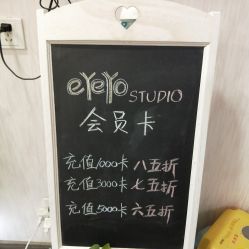 eyeyo STUDIO
会员卡
充值1000卡 八五折
充值3000卡 七五折
充值5000卡 六五折